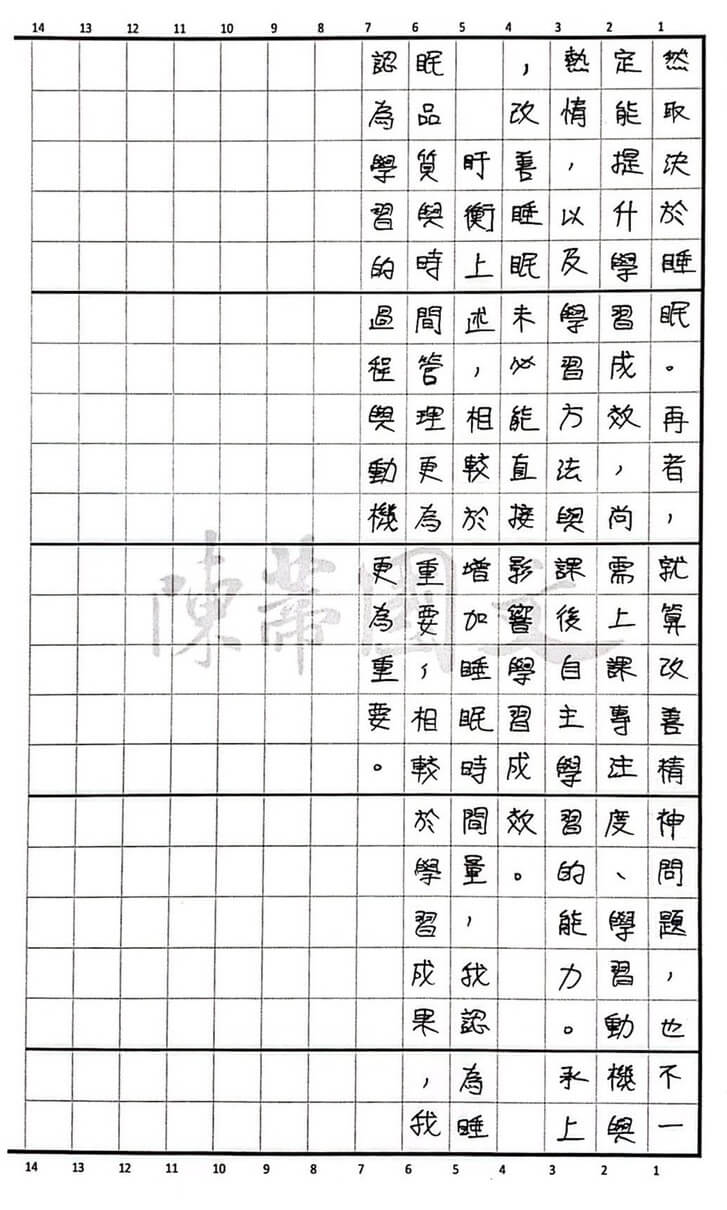 14 13 12 11 10 9 8 7 6 5 4 3 2 1
然取決於睡眠。再者，就算改善精神問題，也不一
定能提升學習成效，尚需上課專注度、學習動機與
熱情，以及學習方法與課後自主學習的能力。承上
，改善睡眠未必能直接影響學習成效。
盱衡上述，相較於增加睡眠時間量，我認為睡
眠品質與時間管理更為重要，相較於學習成果，我
認為學習的過程與動機更為重要。
陳蒂國文
14 13 12 11 10 9 8 7 6 5 4 3 2 1